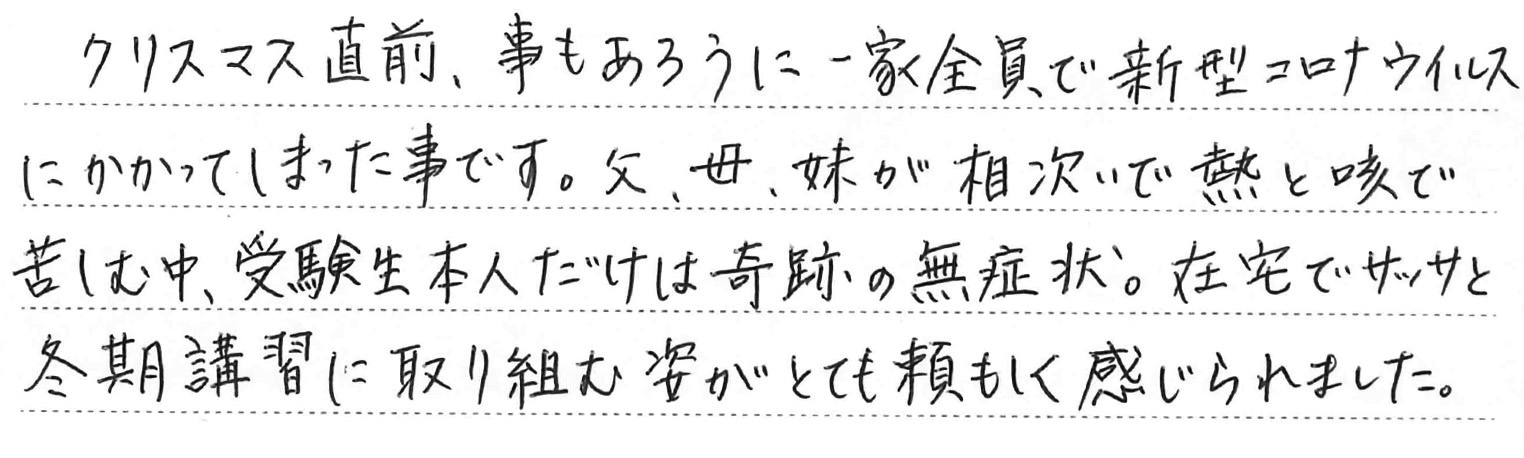 クリスマス直前、事もあろうに一家全員で新型コロナウイルス
にかかってしまった事です。父、母、妹が相次いで熱と咳で
苦しむ中、受験生本人だけは奇跡の無症状。在宅でサッサと
冬期講習に取り組む姿がとても頼もしく感じられました。